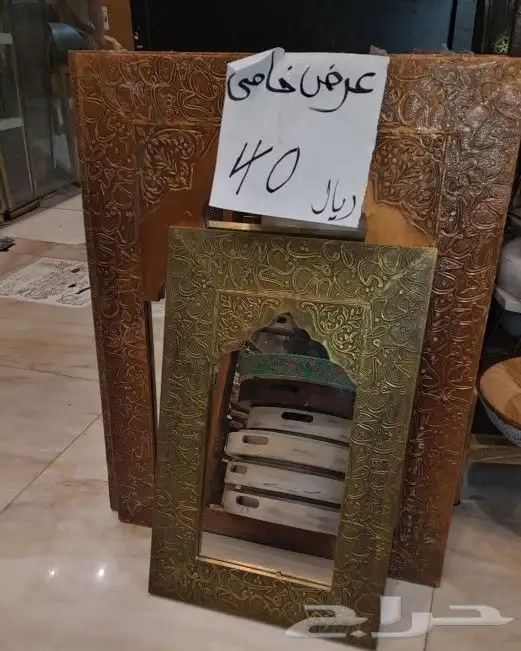 عرض خاص
40
ريال
حراج